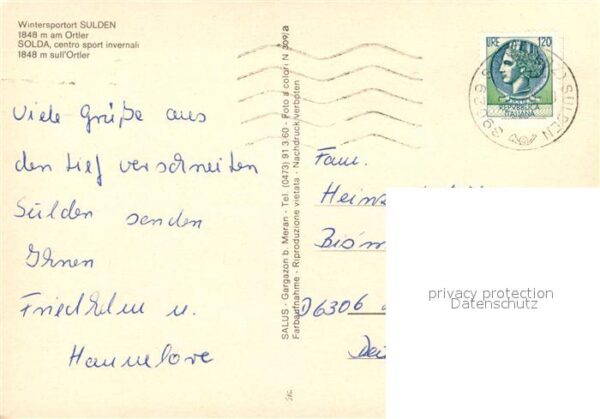 Wintersportort SULDEN
1848 m am Ortler
SOLDA, centro sport invernali
1848 m sull'Ortler
Viele Grüße aus
den tief verschneiten
Sulden senden
Ihnen
Friedhelm u.
Hannelore
SALUS - Gargazon b. Meran - Tel. (0473) 91 3 60 - Foto a colori N 309/a
Farbaufnahme - Riproduzione vietata - Nachdruck verboten
LIRE 120
REPUBBLICA
ITALIANA
SULDEN
39029
Fam.
Heinz
D6306
privacy protection
Datenschutz